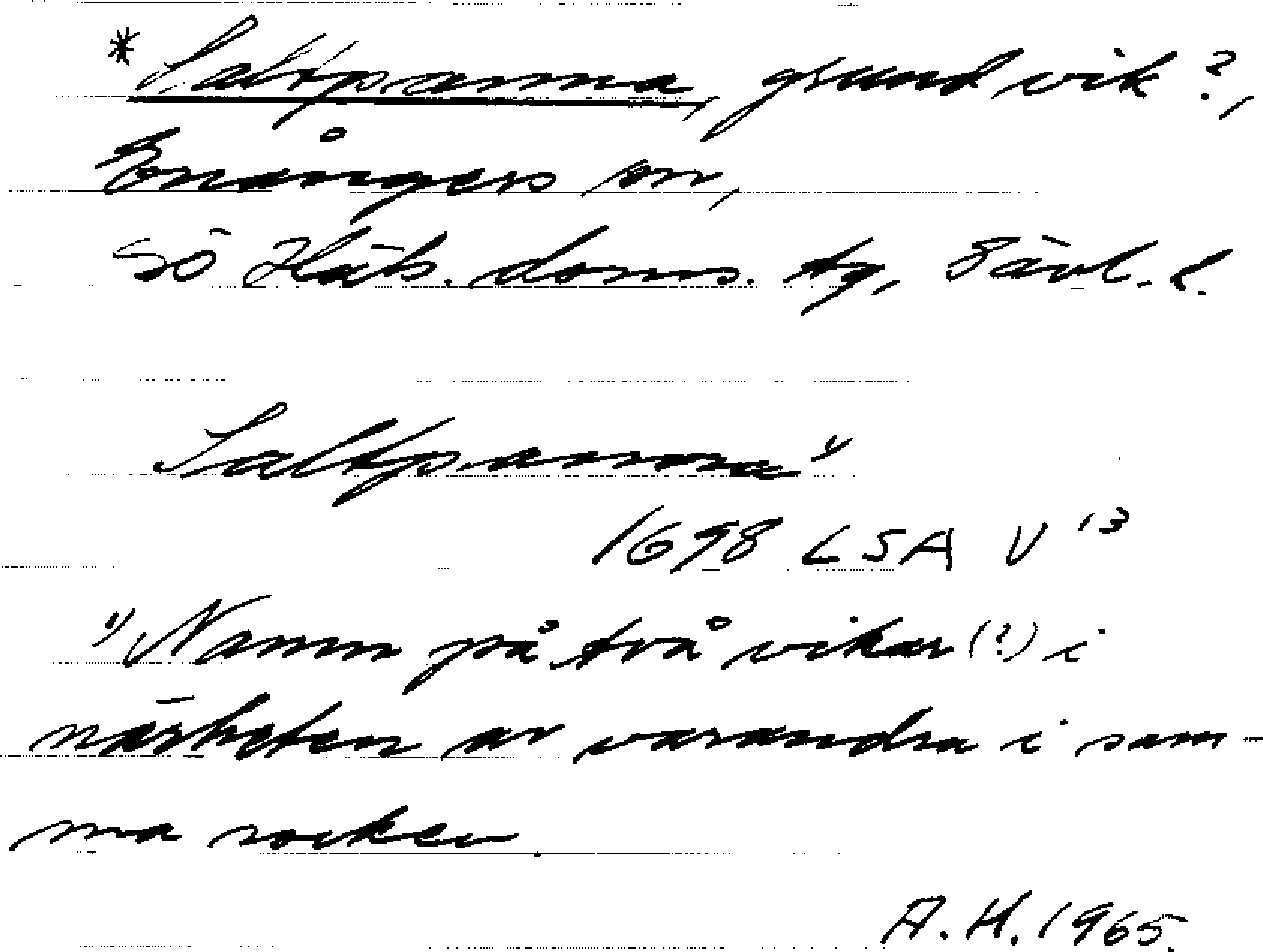 *Saltpanna, grund vik?,
Enångers sn,
SÖ Häls. doms. tg, Gävl. l.
Saltpanna 1)
1698 LSA V 13
1) Namn på två vikar (?) i
närheten av varandra i sam-
ma socken
A. H. 1965.